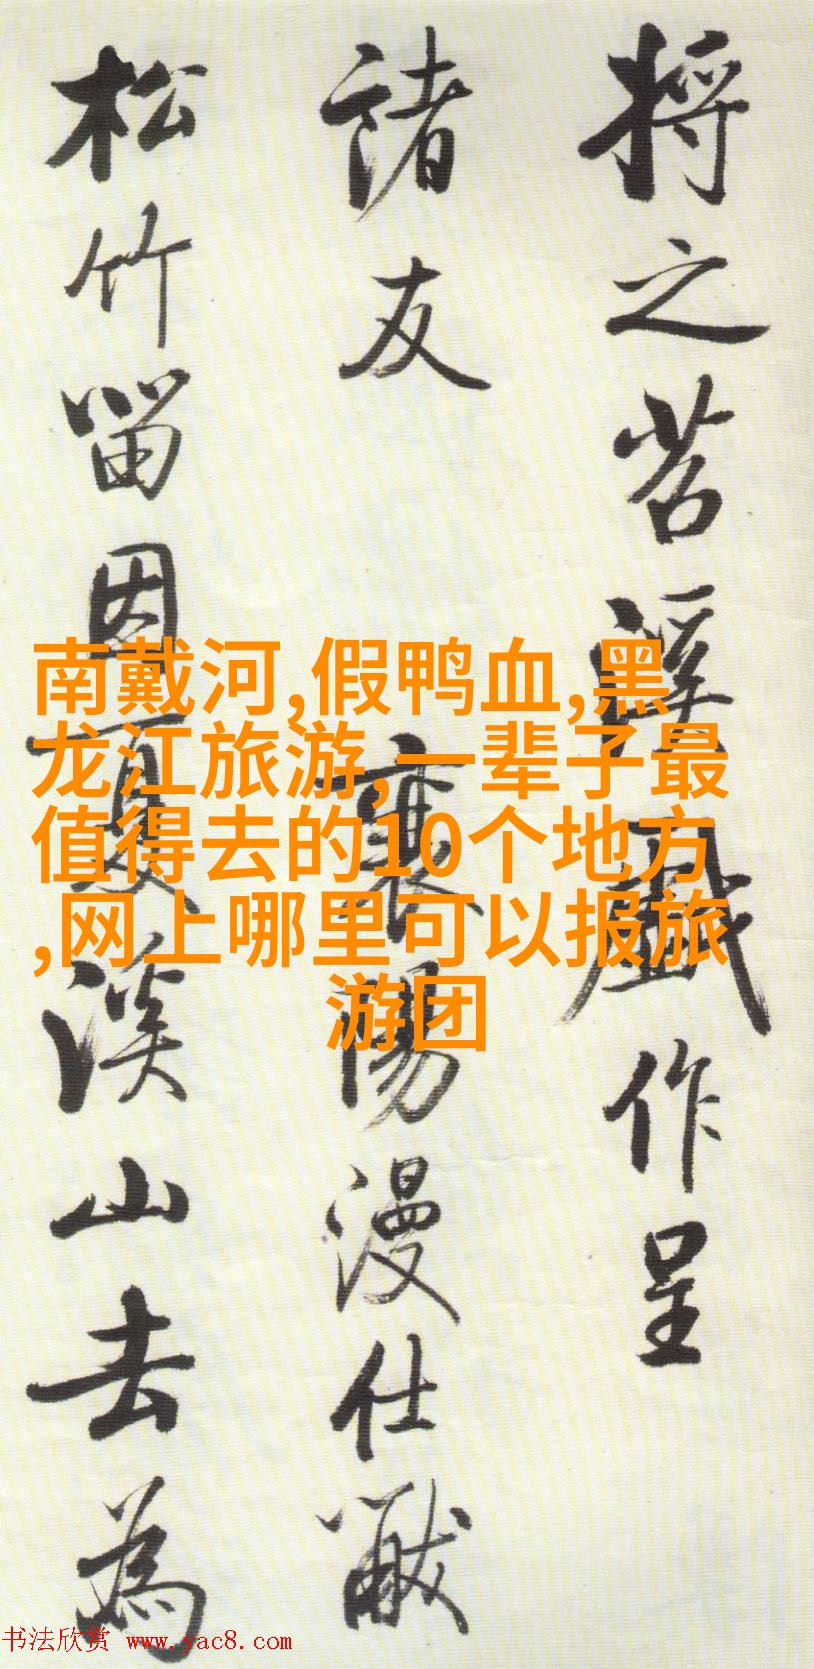 将之苕溪戲作呈
諸友 襄陽漫仕黻
松竹留因夏溪山去為
南戴河,假鸭血,黑
龙江旅游,一辈子最
值得去的10个地方
,网上哪里可以报旅
游团
书法欣赏 www.yac8.com